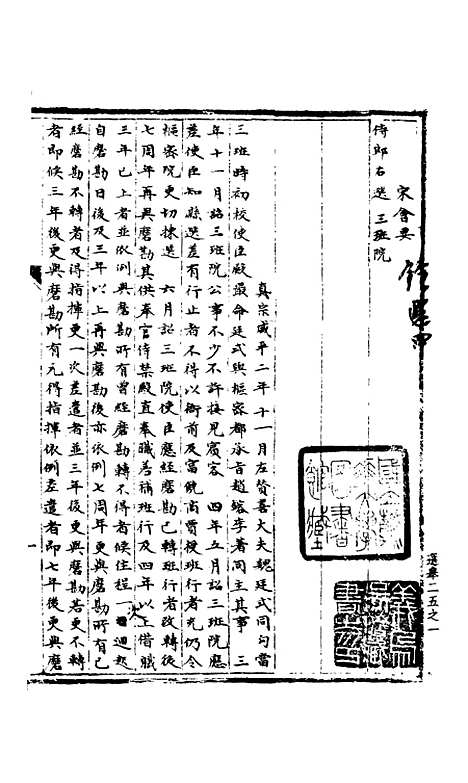 宋會要
侍郎右選 三班院
真宗咸平二年十一月左贊善大夫魏廷式同句當
三班時初校使臣殿最命廷式與樞密都承旨趙鎔李著同主其事 三
年十一月詔三班院公事不少不許接見賓客 四年五月詔三班院應
差使臣知縣選差有行止者不得以衙前及富饒商賈授班行者充仍令
樞密院更切揀選 六月詔三班院使臣應經磨勘已轉班行者改轉後
七周年再與磨勘其供奉官侍禁殿直奉職善稱班行及四年以上借職
三年已上者並依例與磨勘所有曾經磨勘轉不得者候住程一 週
自磨勘日後及三年以上再與磨勘後亦依例七周年更與磨勘所有已
經磨勘不轉者及得指揮更一次差遣者並三年後更與磨勘若更不轉
者即候三年後更與磨勘所有元得指揮依例差遣者即七年後更與磨
選舉二五之一